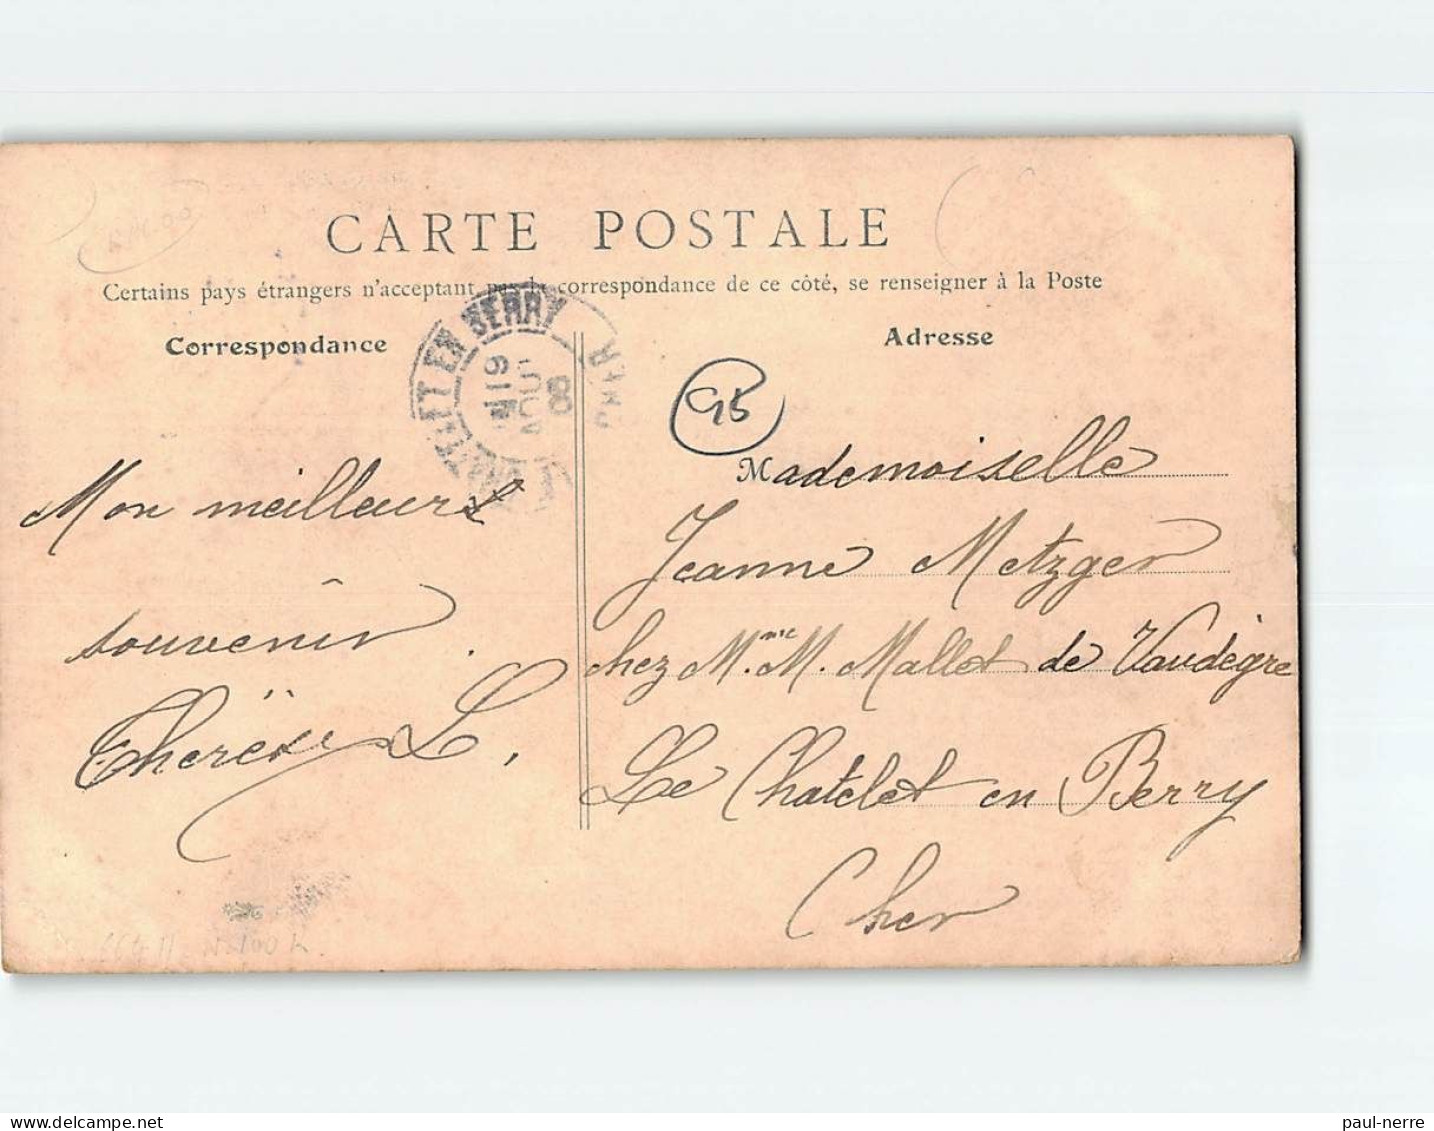 CARTE POSTALE
Certains pays étrangers n'acceptant pas la correspondance de ce côté, se renseigner à la Poste
Correspondance
Adresse
EN BERRY
CHER
19
08
95
Mon meilleur
souvenir.
Thérèse L.
Mademoiselle
Jeanne Metzger
chez M.me M. Mallet de Vaudègre
Le Chatelet en Berry
Cher
paul-nerre